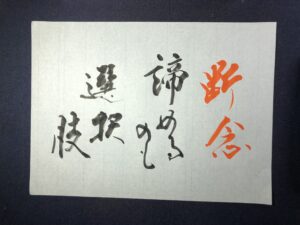 断念
諦めるのも
選択肢